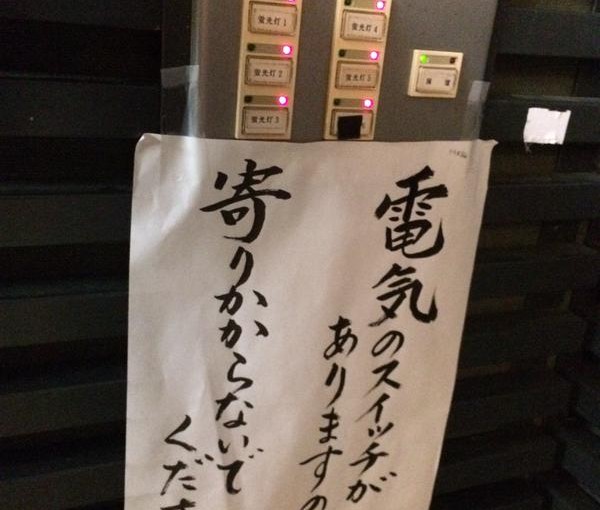 蛍光灯1
蛍光灯2
蛍光灯3
蛍光灯4
蛍光灯5
電気のスイッチが
ありますの
寄りかからないで
くださ